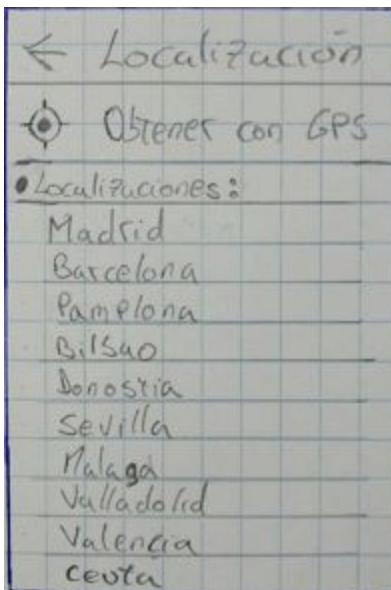 ← Localización
Obtener con GPS
• Localizaciones:
Madrid
Barcelona
Pamplona
Bilbao
Donostia
Sevilla
Malaga
Valladolid
Valencia
Ceuta